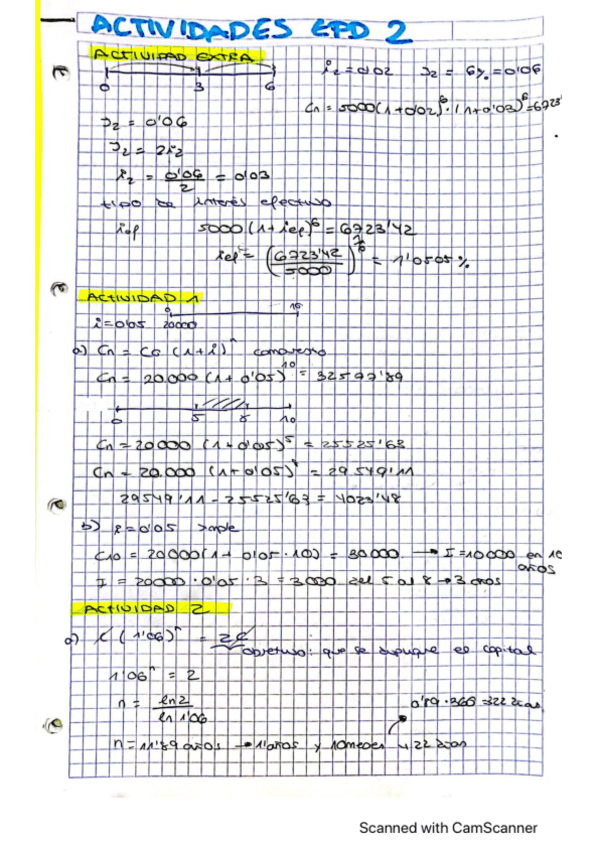 ACTIVIDADES EPD 2
ACTIVIDAD EXTRA
0 3 6
i2 = 0'02 J2 = 6% = 0'06
Cn = 5000(1+0'02)^6 · (1+0'03)^6 = 6723'
J2 = 0'06
J2 = 2i2
i2 = 0'06/2 = 0'03
tipo de interés efectivo
ief 5000(1+ief)^6 = 6723'42
ief = (6723'42/5000)^1/6 = 1'0505%
ACTIVIDAD 1
0 10
i = 0'05 20000
a) Cn = C0 (1+i)^n compuesto
Cn = 20.000 (1+0'05)^10 = 32577'89
0 5 8 10
Cn = 20000 (1+0'05)^5 = 25525'63
Cn = 20.000 (1+0'05)^8 = 29549'11
29549'11 - 25525'63 = 4023'48
b) i = 0'05 simple
C10 = 20000(1+0'05·10) = 30000 → I = 10000 en 10
años
I = 20000·0'05·3 = 3000 del 5 al 8 → 3 años
ACTIVIDAD 2
a) C(1'06)^n = 2C
objetivo: que se duplique el capital
1'06^n = 2
n = ln2/ln1'06
0'89·360 = 322 días
n = 11'89 años → 11 años y 10 meses y 22 días
Scanned with CamScanner